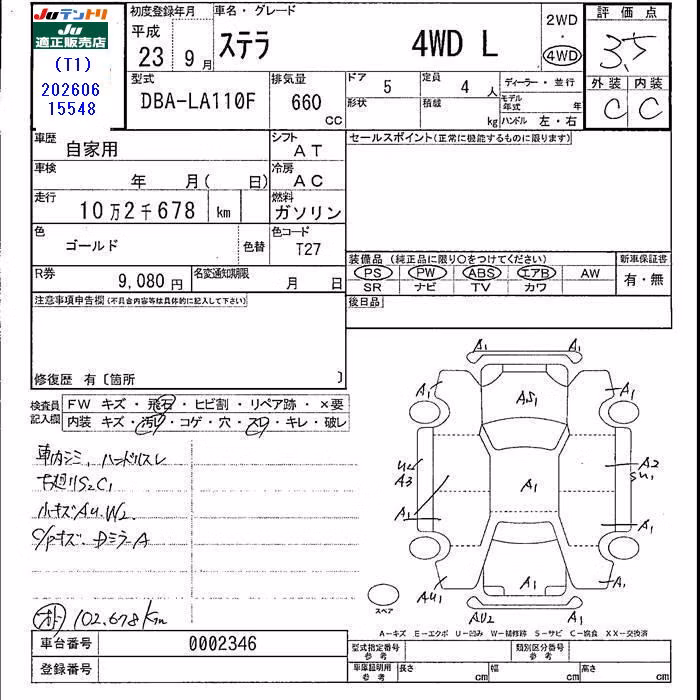 JUテントリ
JU
適正販売店
(T1)
202606
15548
初度登録年月
平成
23 9月
車名・グレード
ステラ 4WD L
2WD
4WD
評価点
3.5
外装 内装
C C
型式
DBA-LA110F
排気量
660
CC
ドア
5
定員
4 人
形状
積載
kg
ディーラー・並行
モデル年式 年
ハンドル 左・右
車歴
自家用
シフト
AT
車検
年 月( 日)
冷房
AC
走行
10万2千678 km
燃料
ガソリン
色
ゴールド
色替
色コード
T27
R券
9,080円
名変通知期限
月 日
セールスポイント(正常に機能するものに限ります)
装備品 (純正品に限り○をつけてください)
新車保証書
PS PW ABS エアB AW
SR ナビ TV カワ
有・無
後日品
注意事項申告欄(不具合内容等は具体的に記入して下さい)
修復歴 有〔箇所 〕
検査員
記入欄
FW キズ・飛石・ヒビ割・リペア跡・×要
内装 キズ・汚れ・コゲ・穴・スレ・キレ・破レ
車内シミ、ハンドルスレ
下廻りS2C1
小キズAU.W2
102.678Km
A1 A1
A1 AS1 A1
U2
A3
A1
A2
SU1
A1
A1 A1
AU1 A1 A1
AU2 A1
スペア
A-キズ E-エクボ U-凹み W-補修跡 S-サビ C-腐食 XX-交換済
車台番号
0002346
登録番号
型式指定番号
参考
類別区分番号
参考
車庫証明用
参考
長さ cm
幅 cm
高さ cm